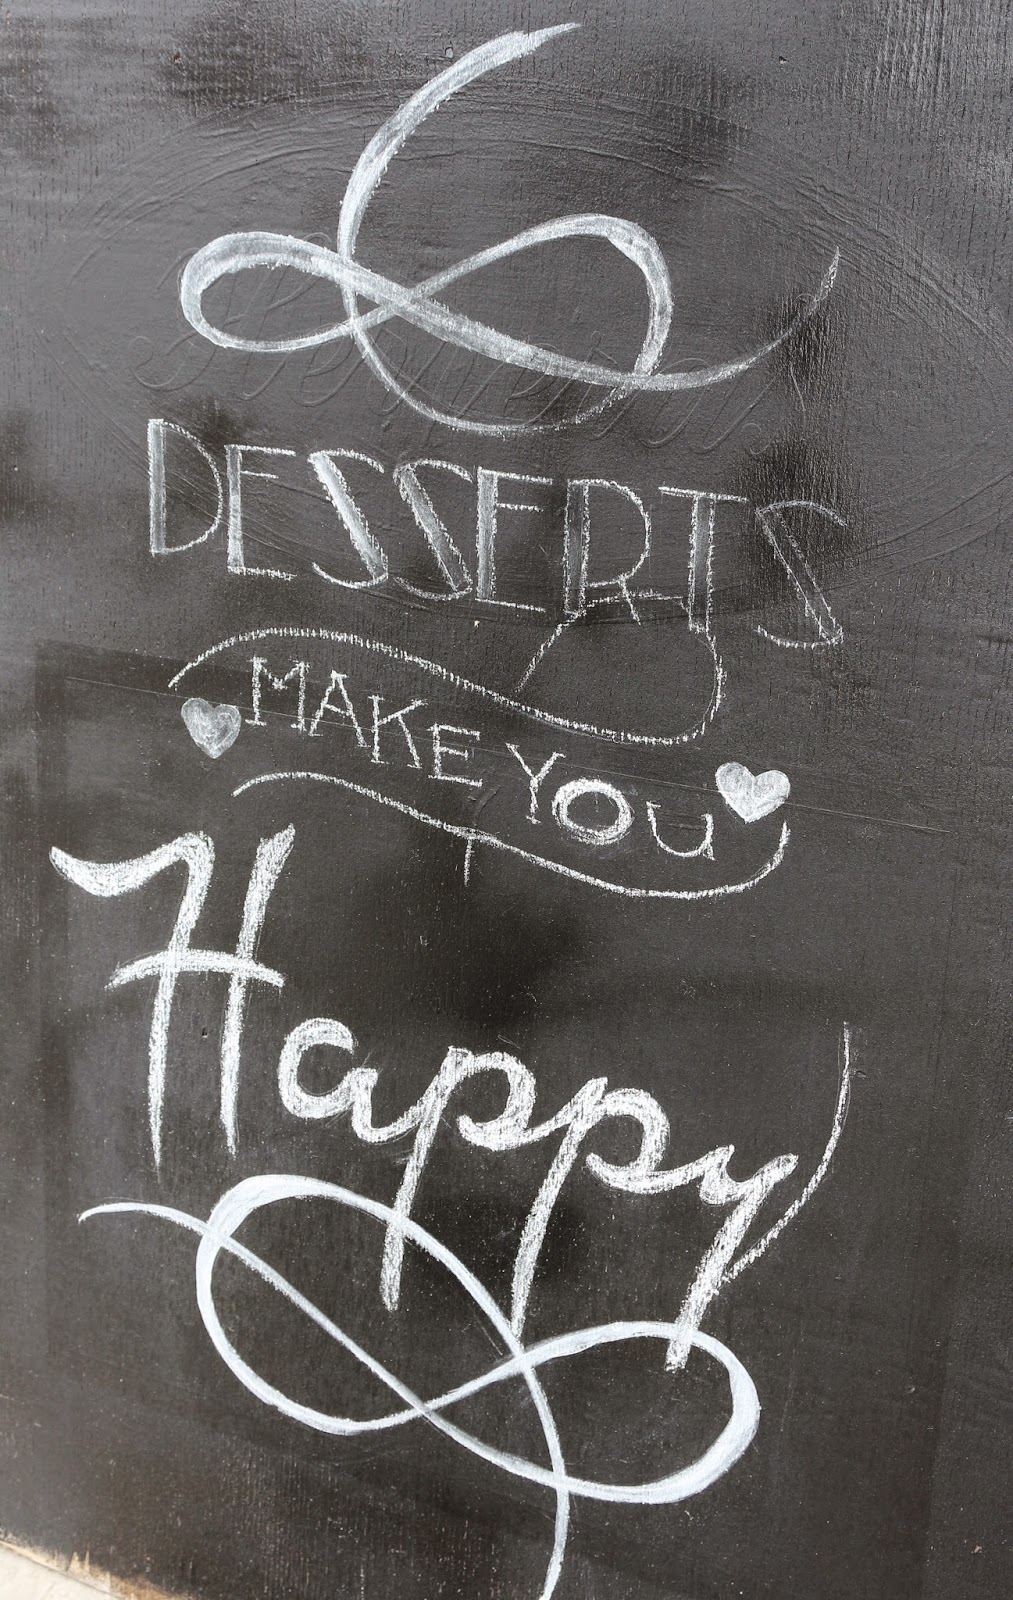 DESSERTS
MAKE YOU
Happy